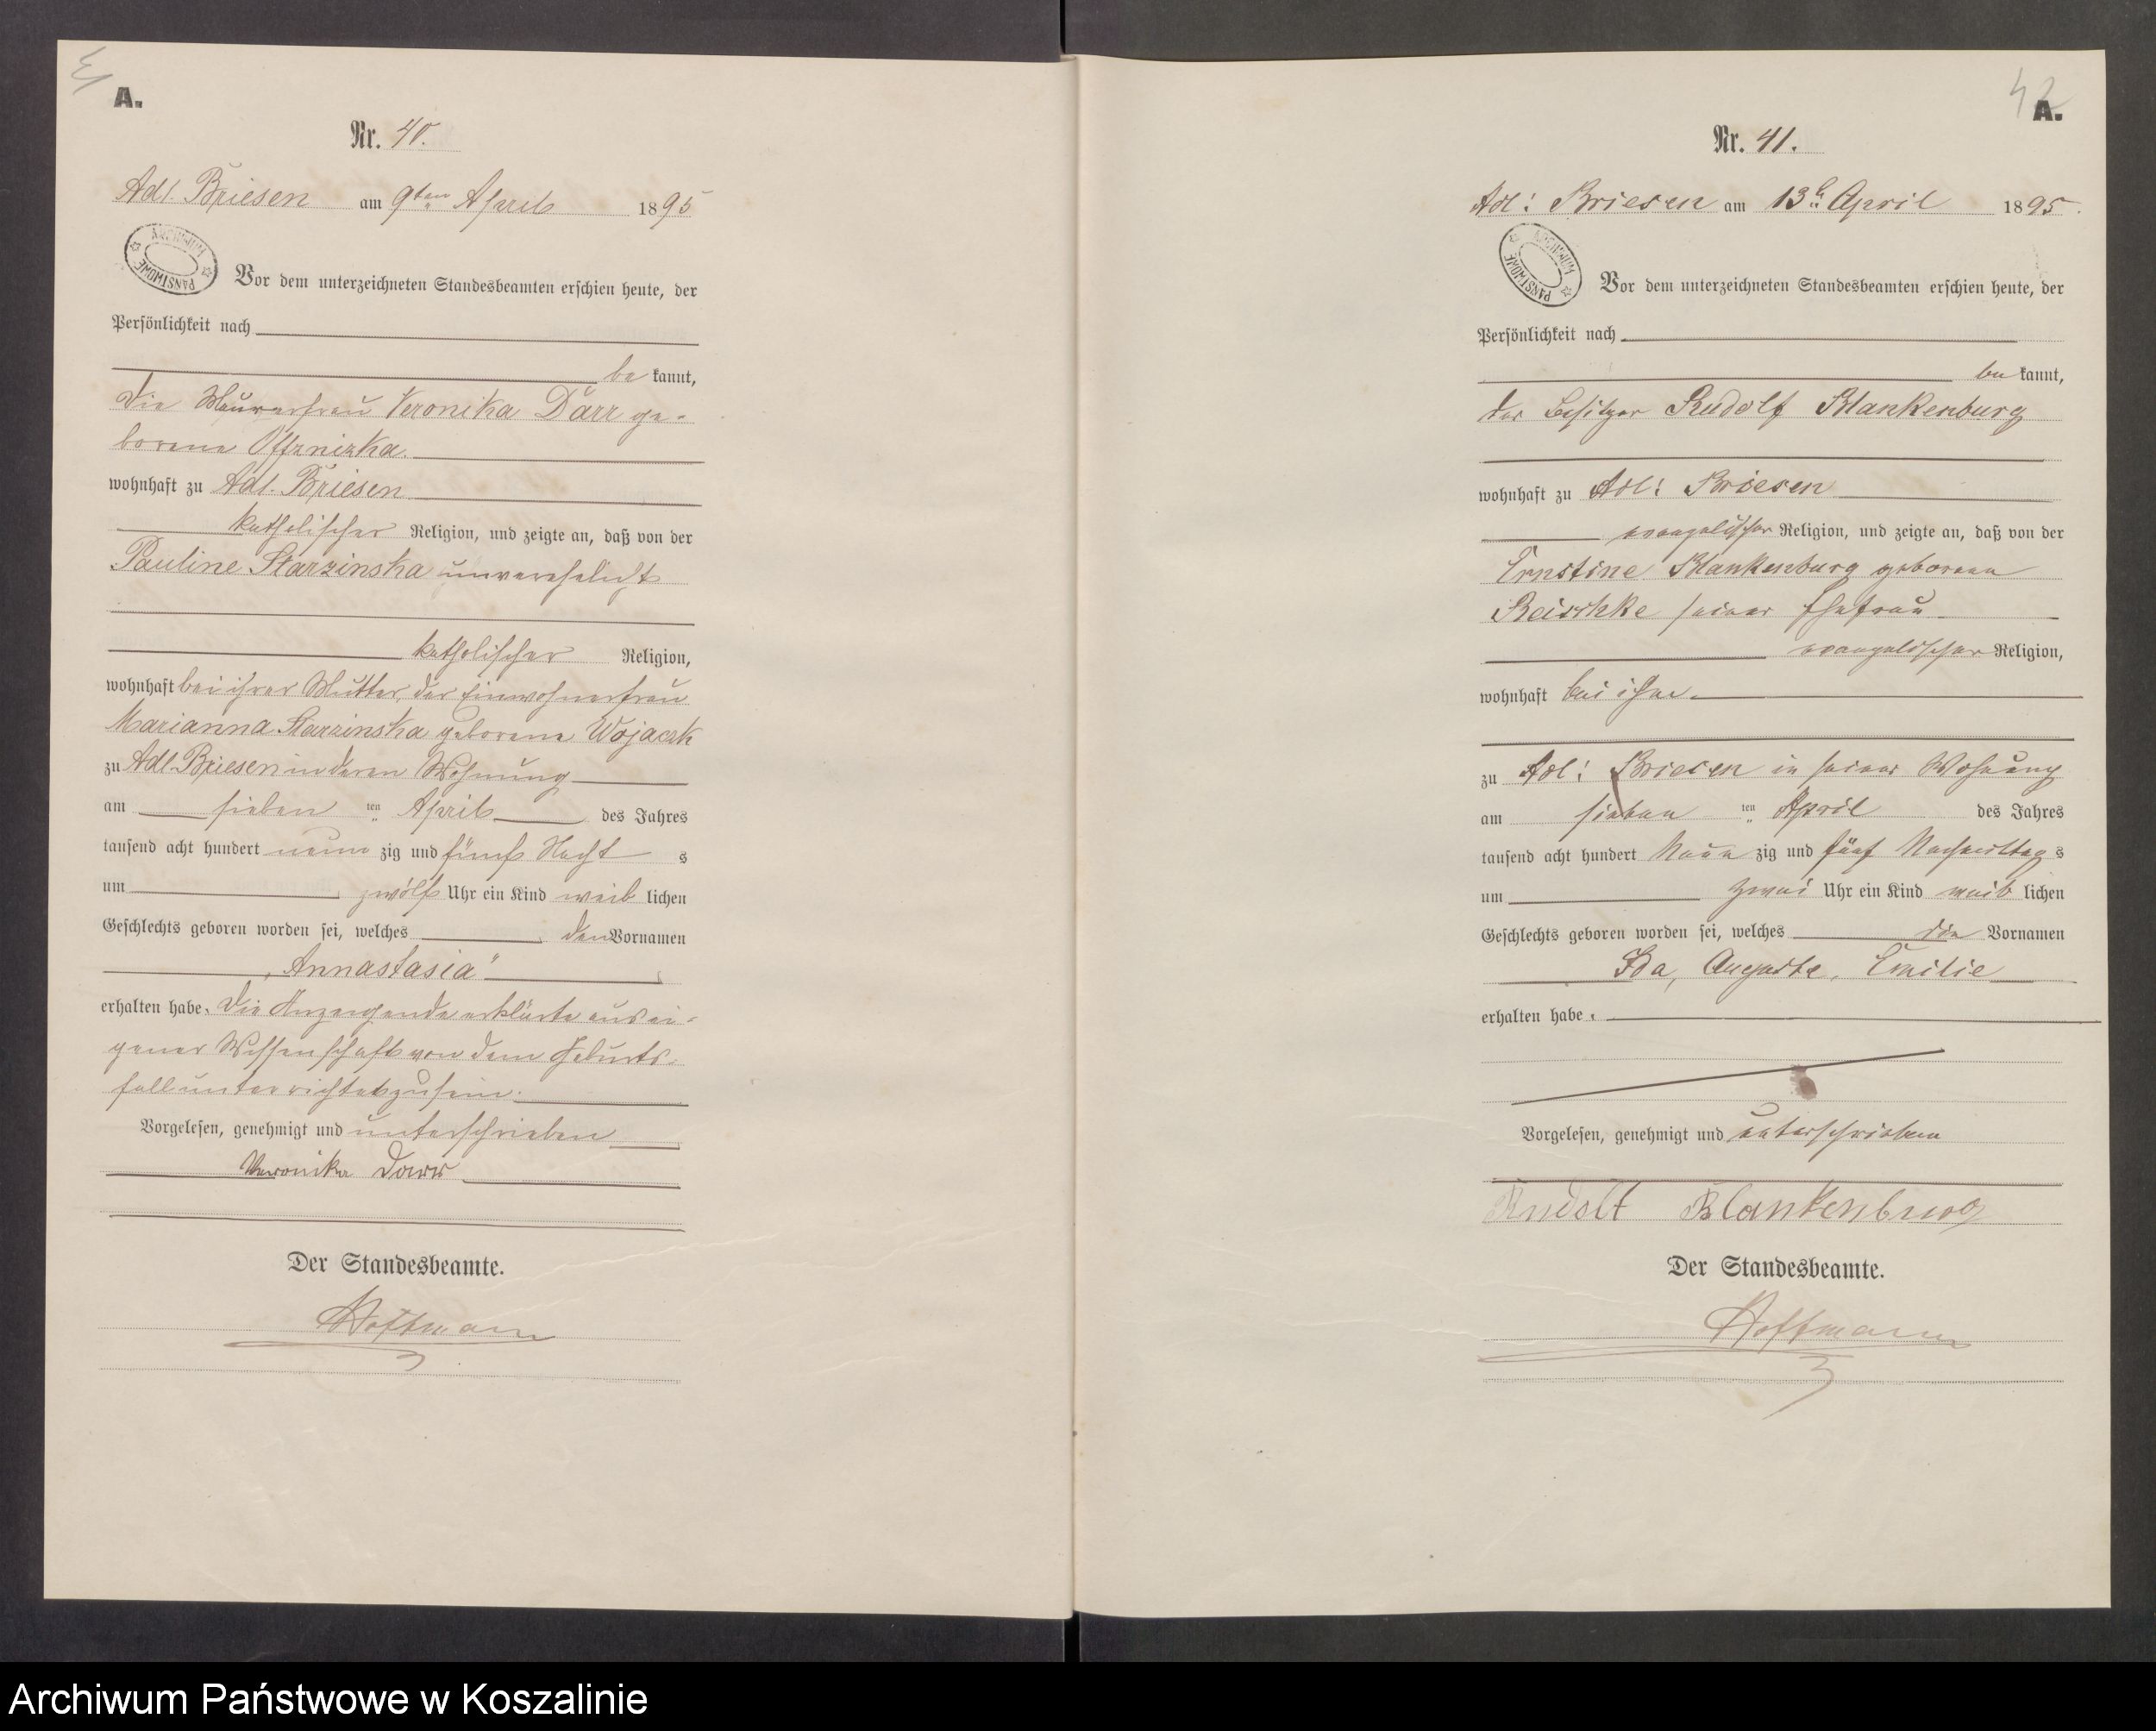 A.
Nr. 40.
Adl. Briesen am 9ten April 1895
ARCHIWUM PAŃSTWOWE
Vor dem unterzeichneten Standesbeamten erschien heute, der
Persönlichkeit nach
be kannt,
die Maurerfrau Veronika Darr ge-
borene
wohnhaft zu Adl. Briesen
katholischer Religion, und zeigte an, daß von der
Pauline Starzinska unverehelicht
katholischer Religion,
wohnhaft bei ihrer Mutter, der Einwohnerfrau
Marianna Starzinska geborene Wojaczk
zu Adl. Briesen in deren Wohnung
am sieben ten April des Jahres
tausend acht hundert neun zig und fünf Nacht s
um zwölf Uhr ein Kind weib lichen
Geschlechts geboren worden sei, welches den Vornamen
„Annastasia"
erhalten habe. Die Anzeigende erklärte aus ei-
gener Wissenschaft von dem Geburts-
fall unterrichtet zu sein.
Vorgelesen, genehmigt und unterschrieben
Veronika Darr
Der Standesbeamte.
Hoffmann
42
A.
Nr. 41.
Adl: Briesen am 13t April 1895.
ARCHIWUM PAŃSTWOWE
Vor dem unterzeichneten Standesbeamten erschien heute, der
Persönlichkeit nach
be kannt,
der Besitzer Rudolf Blankenburg
wohnhaft zu Adl: Briesen
evangelischer Religion, und zeigte an, daß von der
Ernstine Blankenburg geborene
Reischke seiner Ehefrau
evangelischer Religion,
wohnhaft bei ihm
zu Adl: Briesen in seiner Wohnung
am sieben ten April des Jahres
tausend acht hundert Neun zig und fünf Nachmittag s
um zwei Uhr ein Kind weib lichen
Geschlechts geboren worden sei, welches die Vornamen
Ida, Auguste, Emilie
erhalten habe.
Vorgelesen, genehmigt und unterschrieben
Rudolf Blankenburg
Der Standesbeamte.
Hoffmann
Archiwum Państwowe w Koszalinie